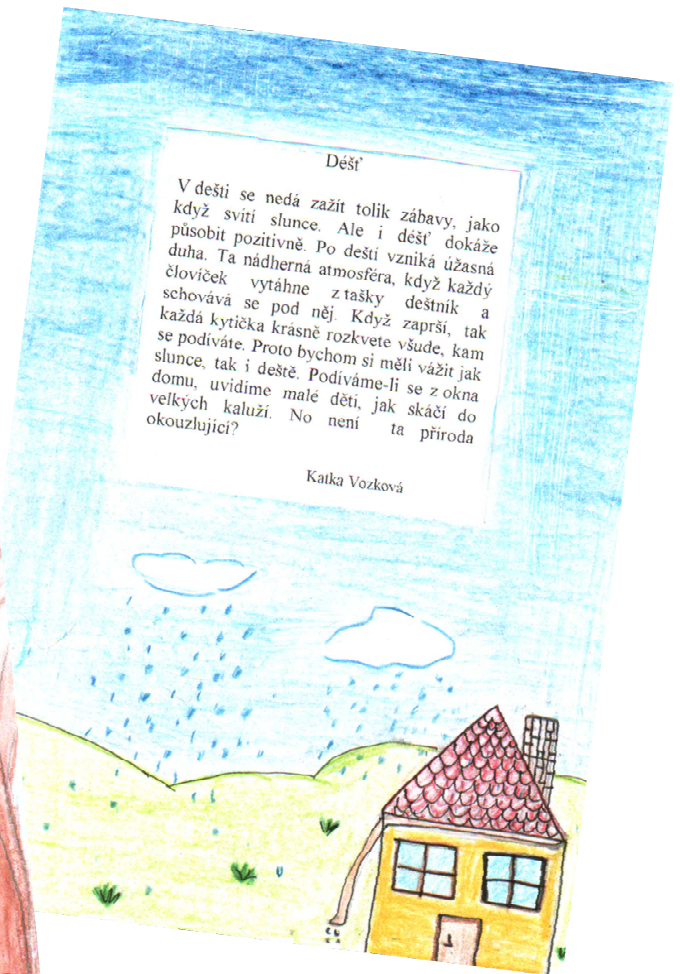 Déšť
V dešti se nedá zažít tolik zábavy, jako
když svítí slunce. Ale i déšť dokáže
působit pozitivně. Po dešti vzniká úžasná
duha. Ta nádherná atmosféra, když každý
človíček vytáhne z tašky deštník a
schovává se pod něj. Když zaprší, tak
každá kytička krásně rozkvete všude, kam
se podíváte. Proto bychom si měli vážit jak
slunce, tak i deště. Podíváme-li se z okna
domu, uvidíme malé děti, jak skáčí do
velkých kaluží. No není ta příroda
okouzlující?
Katka Vozková